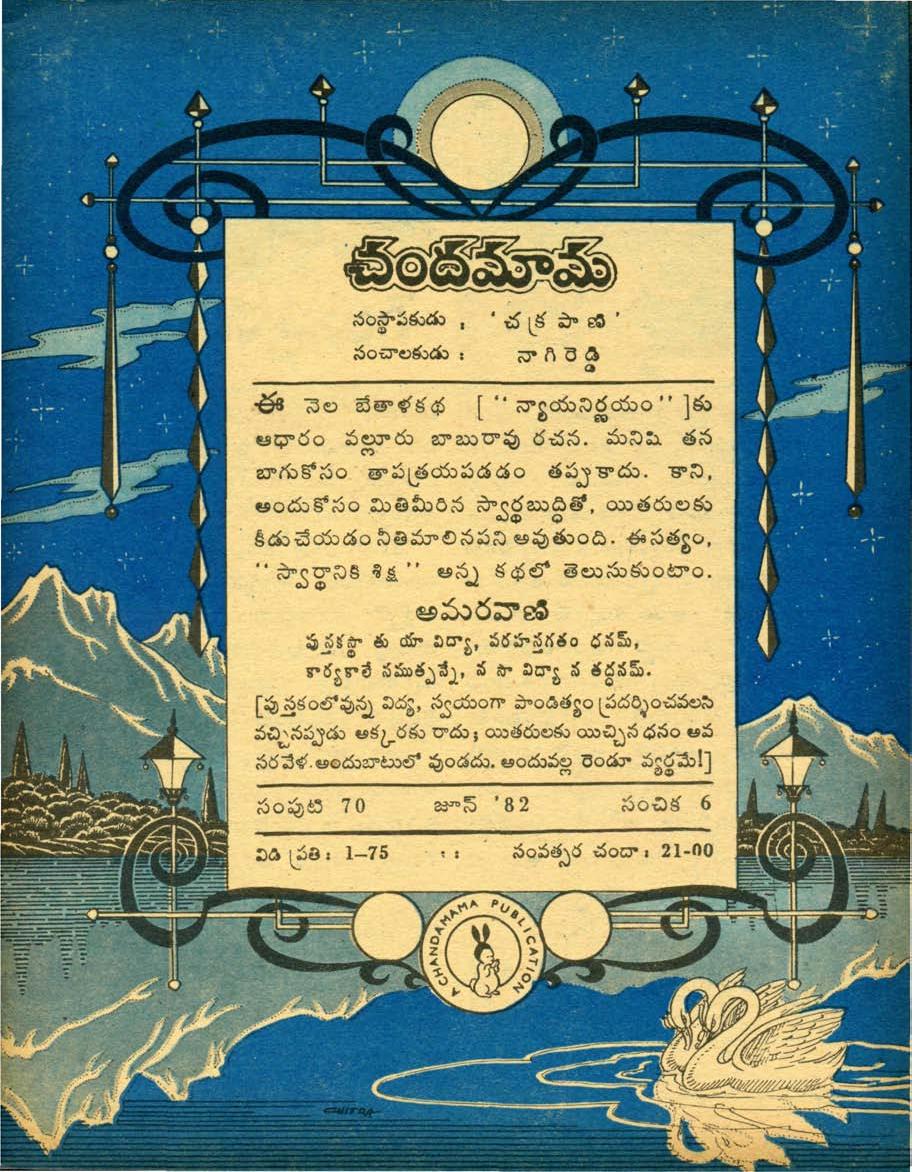 చందమామ
సంస్థాపకుడు : ' చ క్ర పా ణి '
సంచాలకుడు : నా గి రె డ్డి
ఈ నెల బేతాళకథ [ " న్యాయనిర్ణయం " ]కు
ఆధారం వల్లూరు బాబురావు రచన. మనిషి తన
బాగుకోసం తాపత్రయపడడం తప్పుకాదు. కాని,
అందుకోసం మితిమీరిన స్వార్థబుద్ధితో, యితరులకు
కీడుచేయడం నీతిమాలినపని అవుతుంది. ఈ సత్యం,
" స్వార్థానికి శిక్ష " అన్న కథలో తెలుసుకుంటాం.
అమరవాణి
పుస్తకస్థా తు యా విద్యా, పరహస్తగతం ధనమ్,
కార్యకాలే సముత్పన్నే, న సా విద్యా న తద్ధనమ్.
[పుస్తకంలోవున్న విద్య, స్వయంగా పాండిత్యం ప్రదర్శించవలసి
వచ్చినప్పుడు అక్కరకు రాదు; యితరులకు యిచ్చిన ధనం అవ
సరవేళ అందుబాటులో వుండదు. అందువల్ల రెండూ వ్యర్థమే!]
సంపుటి 70 జూన్ '82 సంచిక 6
విడి ప్రతి : 1–75 : : సంవత్సర చందా : 21-00
A CHANDAMAMA PUBLICATION
CHITRA